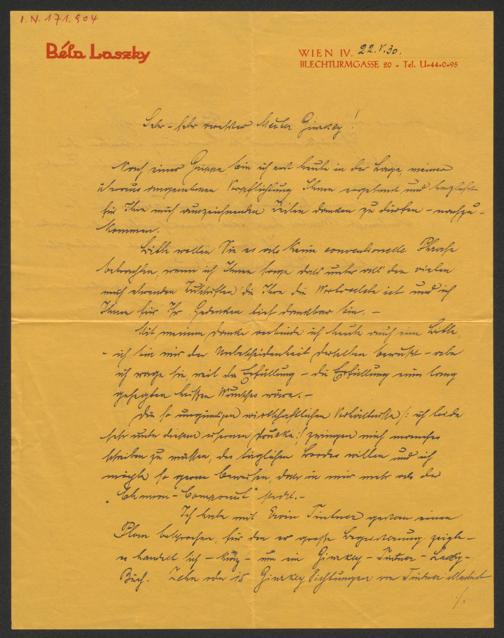 I.N. 171.504
Béla Laszky
WIEN IV. 22.V.30.
BLECHTURMGASSE 20 - Tel. U-44-0-95
Sehr - sehr verehrter Meister Ginzkey!
Nach einer Grippe bin ich erst heute in der Lage meiner
überaus angenehmen Verpflichtung Ihnen ergebenst und herzlichst
für Ihre mich auszeichnenden Zeilen danken zu dürfen - nachzu-
kommen.
Bitte wollen Sie es als keine conventionelle Phrase
betrachten wenn ich Ihnen sage dass unter all den vielen
mich ehrenden Zuschriften die Ihre die Wertvollste ist und ich
Ihnen für Ihr Gedenken tief dankbar bin. -
Mit meinem Danke verbinde ich heute auch eine Bitte
- ich bin mir der Unbescheidenheit derselben bewusst - aber
ich wage sie weil die Erfüllung - die Erfüllung eines lang
gehegten heissen Wunsches wäre. -
Die so ungünstigen wirtschaftlichen Verhältnisse /: ich leide
sehr unter diesem Drucke :/ zwingen mich manches
schreiben zu müssen des täglichen Brodes willen und ich
möchte so gerne beweisen dass in mir mehr als der
"Componist" steckt. -
Ich habe mit Erwin gestern einen
Plan besprochen, für den er grosse Begeisterung zeigte -
es handelt sich - kurz - um ein Ginzkey - Laszky-
Buch. Zehn oder 15 Ginzkey Dichtungen von
./.